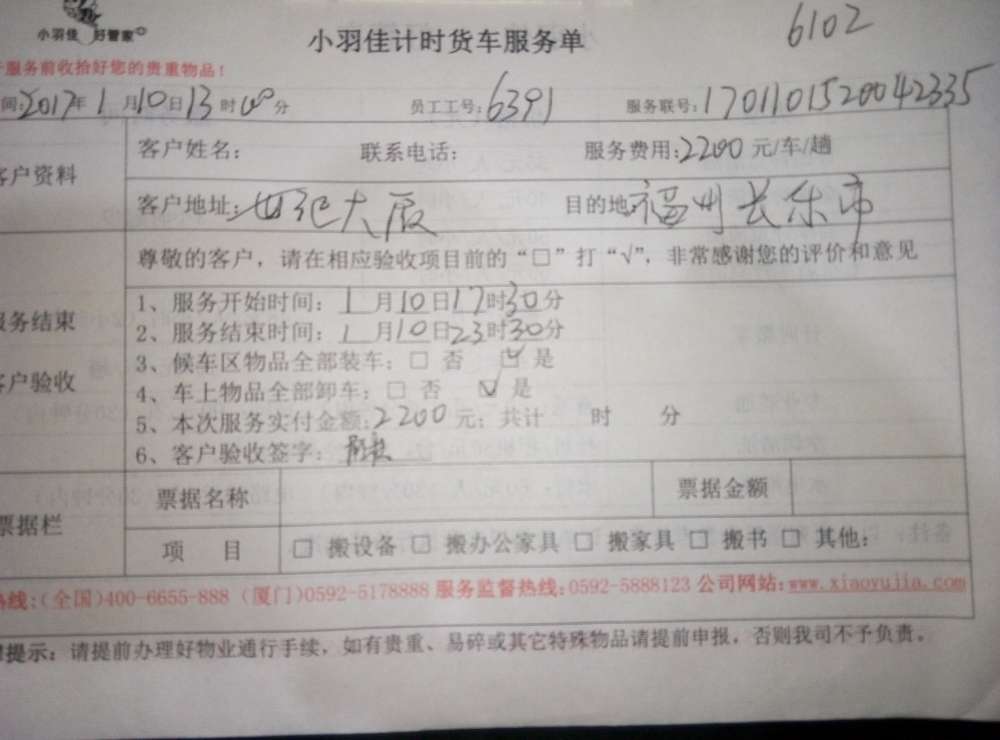 小羽佳 好管家
小羽佳计时货车服务单
6102
服务前收拾好您的贵重物品！
间:2017年1月10日13时00分 员工工号:6391 服务联号:1701101520042335
客户资料
客户姓名: 联系电话: 服务费用:2200元/车/趟
客户地址:世纪大厦 目的地:福州长乐市
尊敬的客户，请在相应验收项目前的“□”打“√”，非常感谢您的评价和意见
服务结束
客户验收
1、服务开始时间: 1月10日17时30分
2、服务结束时间: 1月10日23时30分
3、候车区物品全部装车: □ 否 ☑ 是
4、车上物品全部卸车: □ 否 ☑ 是
5、本次服务实付金额:2200元; 共计 时 分
6、客户验收签字:
票据栏
票据名称 票据金额
项 目 □ 搬设备 □ 搬办公家具 □ 搬家具 □ 搬书 □ 其他:
热线:(全国)400-6655-888 (厦门)0592-5178888 服务监督热线:0592-5888123 公司网站:www.xiaoyujia.com
提示: 请提前办理好物业通行手续，如有贵重、易碎或其它特殊物品请提前申报，否则我司不予负责。